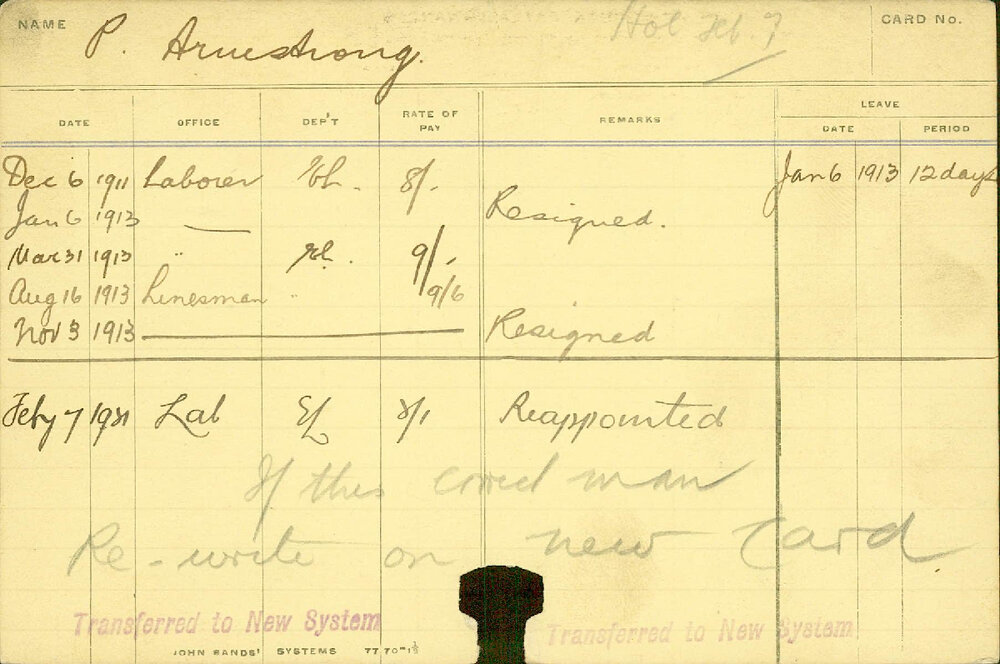 NAME P. Armstrong. Hol Feb. 7 CARD No.
DATE OFFICE DEP'T RATE OF PAY REMARKS LEAVE
DATE PERIOD
Dec 6 1911 Laborer 8/- Jan 6 1913 12 days
Jan 6 1913 — Resigned.
Mar 31 1913 " 9/-
Aug 16 1913 Linesman " 9/6
Nov 3 1913 Resigned
Feby 7 1921 Lab Reappointed
If this correct man
Re-write on new card
Transferred to New System Transferred to New System
JOHN SANDS' SYSTEMS